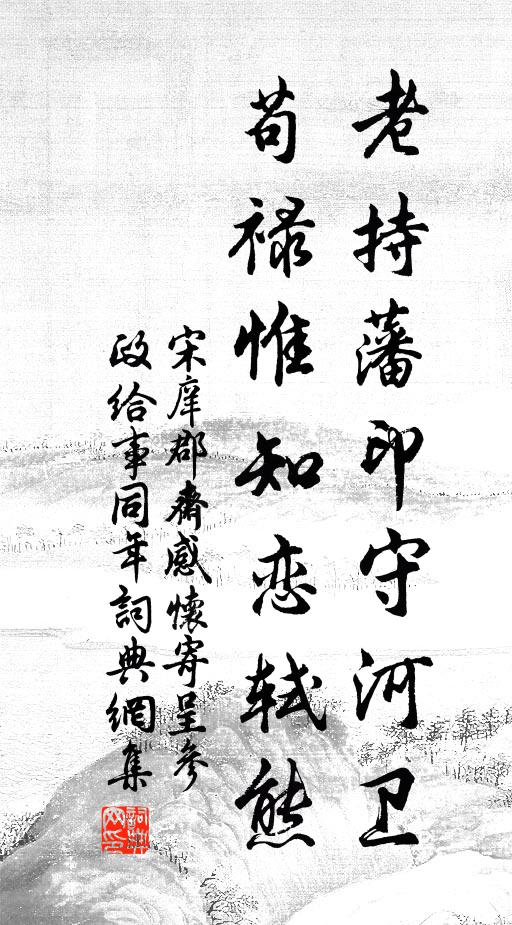 老持藩印守河卫
苟禄惟知恋轼熊
宋庠郡斋感怀寄呈参
政给事同年詞典網集